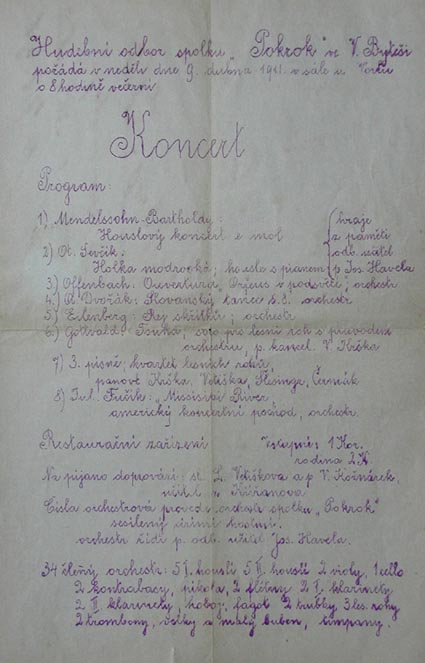 Hudební odbor spolku „Pokrok" ve V. Byteši
pořádá v neděli dne 9. dubna 1911 v sále u
o 8 hodině večerní
Koncert
Program:
1) Mendelssohn-Bartholdy: hraje
Houslový koncert e mol z paměti
2) Ot. Ševčík: odb. učitel
Holka modrooká; housle s pianem p. Jos. Havela
3) Offenbach: Ouvertura, Orfeus v podsvětí; orchestr
4) A. Dvořák: Slovanský tanec č. 8. orchestr
5) Eilenberg: Rej skřítků; orchestr
6) Gottwald: solo pro lesní roh s průvodem
orchestru, p. kancel. V. Krška
7) 3. písně; kvartet lesních rohů,
pánové Krška, Vetiška, Čermák
8) Jul. Fučík: „Missisipi River,
americký koncertní pochod, orchestr.
Restaurační zařízení Vstupné: 1 Kor.
rodina 2 K.
Na pijano doprovází: sl. L. Vetišková a p. V.
učitel
Čísla orchestrová provede orchestr spolku „Pokrok"
sesílený
orchestr řídí p. odb. učitel Jos. Havela.
34 členný orchestr: 5 I. houslí 5 II. houslí 2 violy, 1 cello
2 kontrabasy, pikola, 2 flétny 2 I. klarinety
2 II. klarinety, hoboj, fagot 2 trubky, 3 les. rohy
2 trombony, velký a malý buben, tympany.